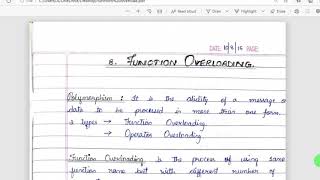 DATE 10/8/15 PAGE:
8. FUNCTION OVERLOADING.
Polymorphism : It is the ability of a message or
data to be processed in more than one form.
2 types → Function Overloading
→ Operator Overloading
Function Overloading is the process of using same
function name but with different number of